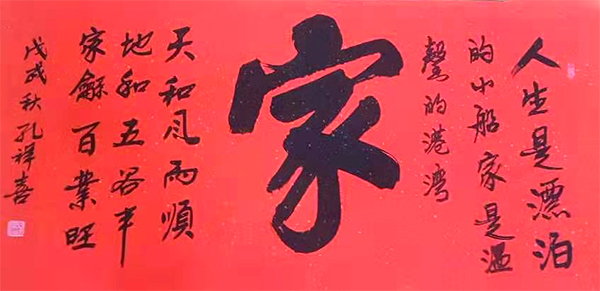 人生是漂泊
的小船家是温
馨的港湾
家
天和风雨順
地和五谷丰
家龢百業旺
戊戌秋孔祥喜